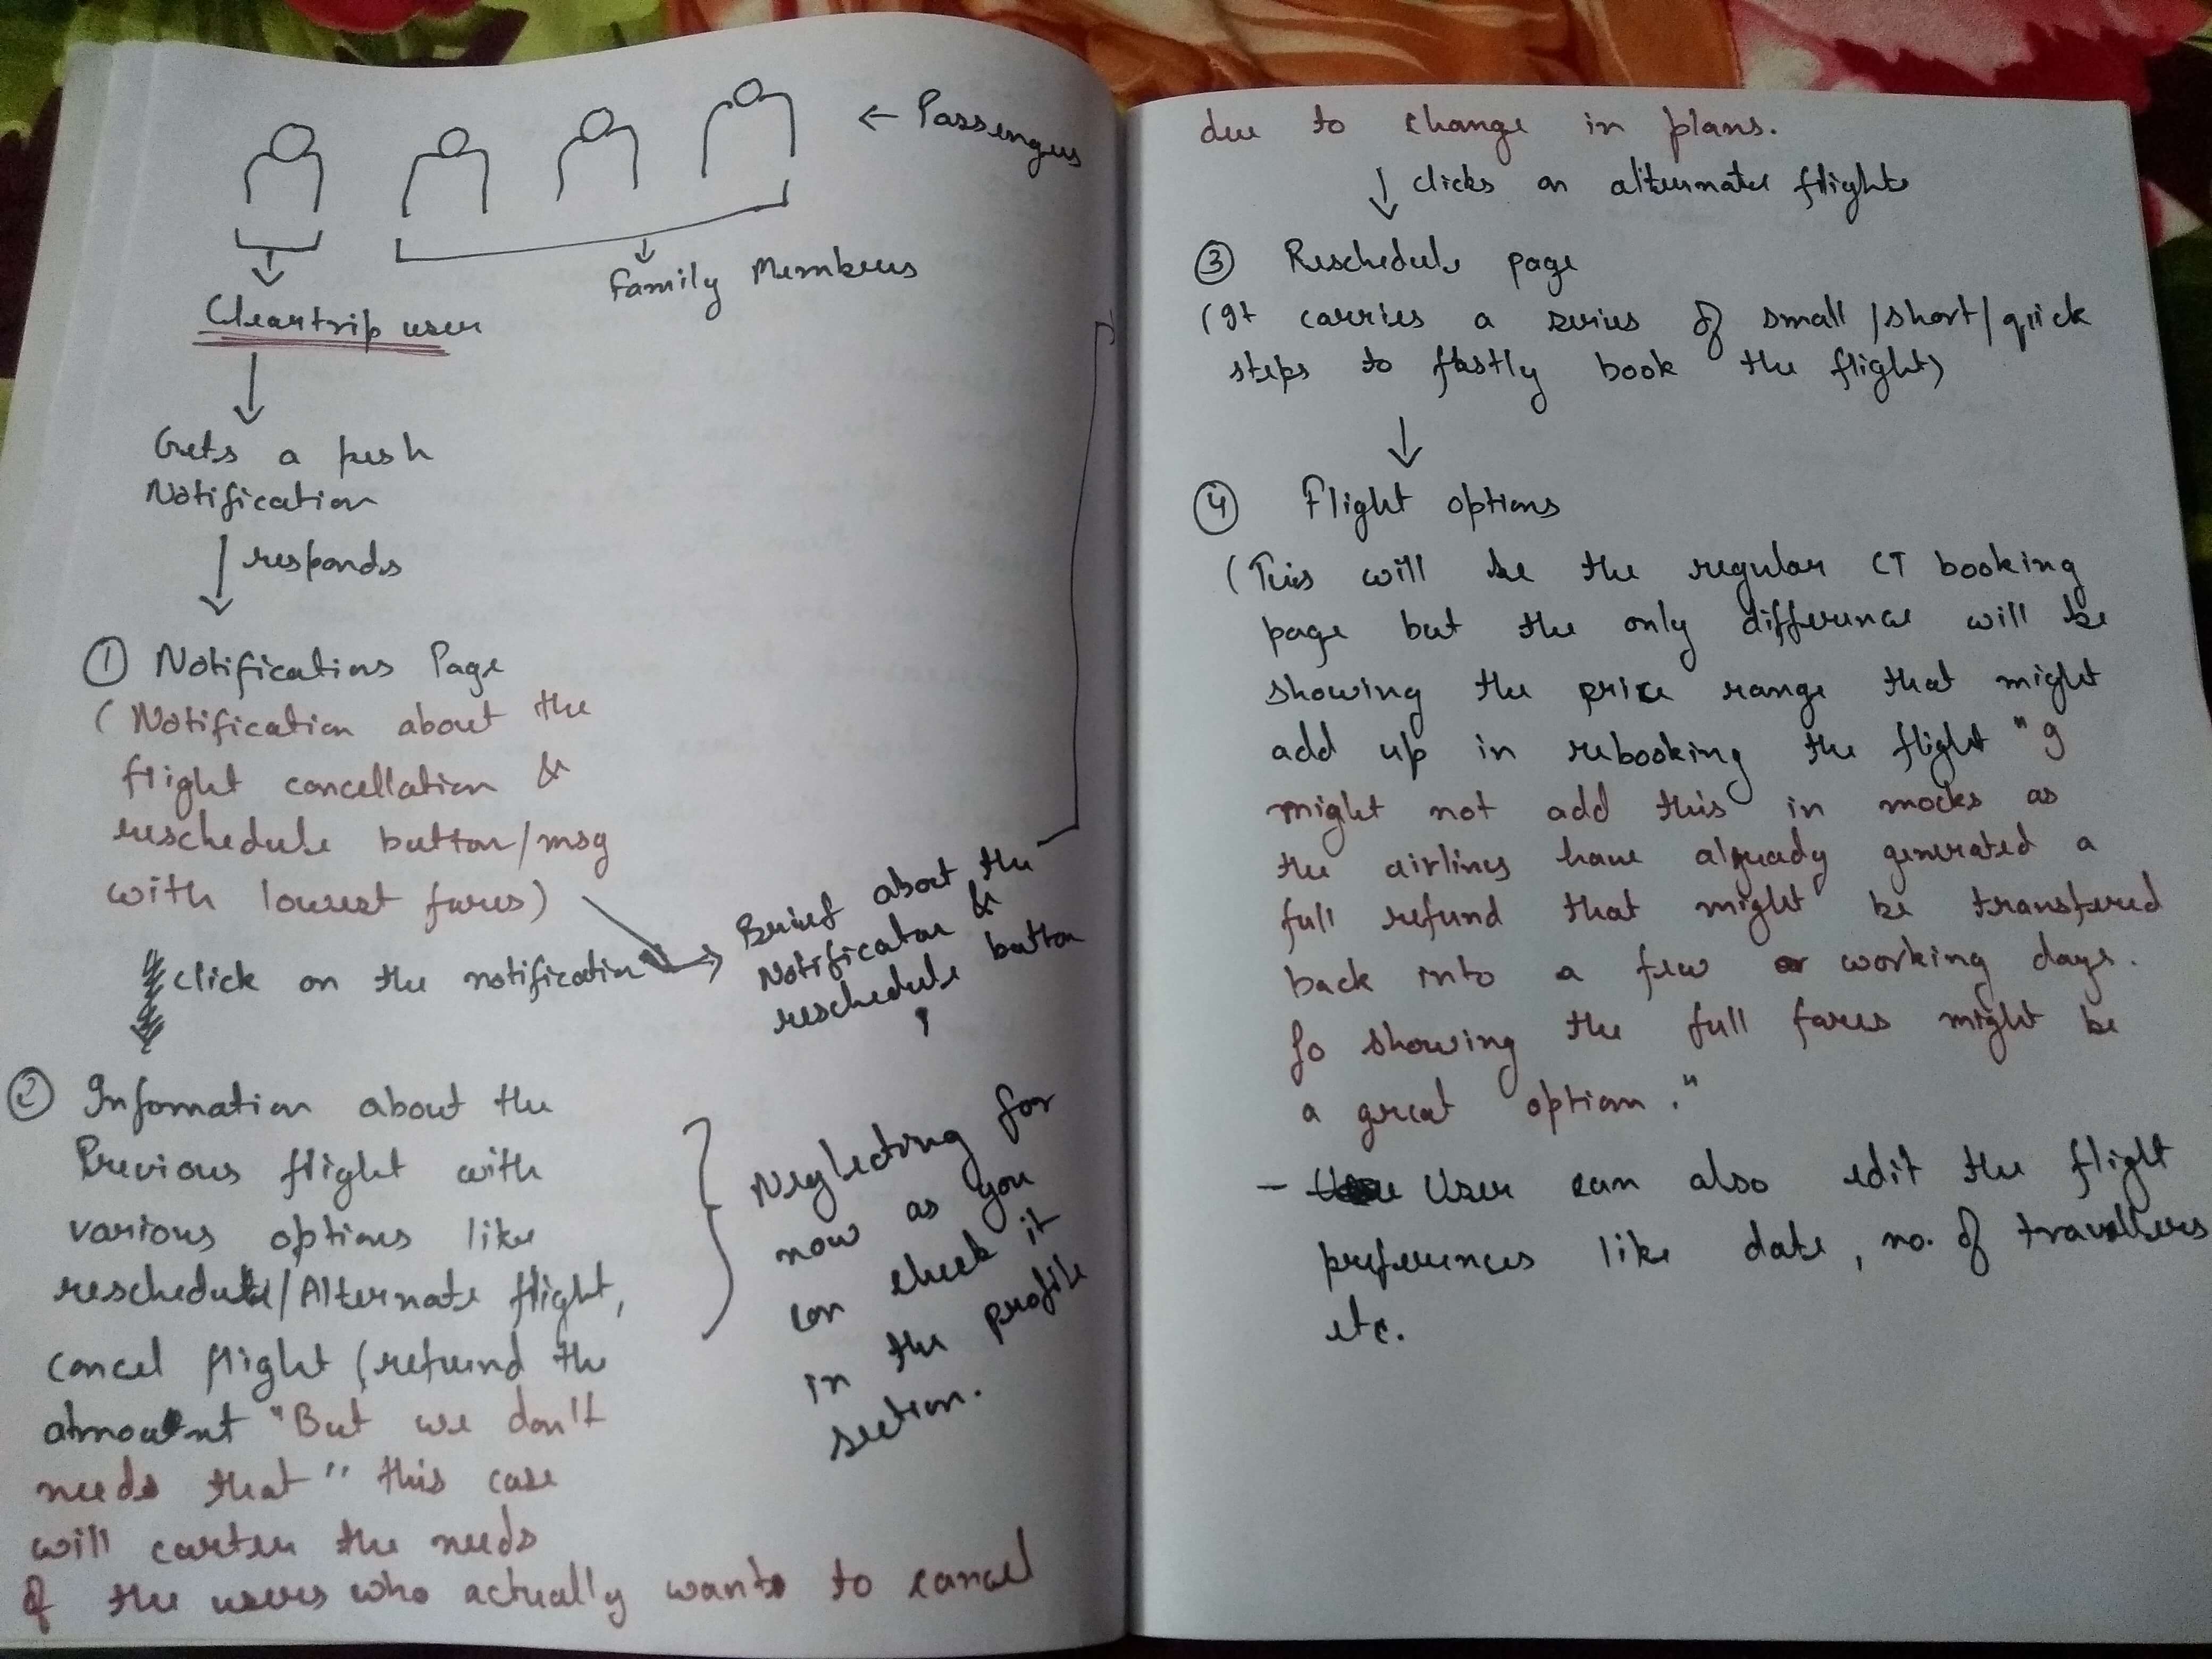 ← Passengers
Family Members
Cleartrip user
Gets a push
Notification
responds
① Notifications Page
(Notification about the
flight cancellation &
reschedule button/msg
with lowest fares)
click on the notification
Brief about the
Notification &
reschedule button
② Information about the
Previous flight with
various options like
reschedule/Alternate flight,
cancel flight (refund the
amount "But we don't
needs that" this case
will carter the needs
of the users who actually wants to cancel
Neglecting for
now as you
can check it
in the profile
section.
due to change in plans.
↓ clicks on alternate flights
③ Reschedule page
(It carries a series of small/short/quick
steps to fastly book the flight)
④ Flight options
(This will be the regular CT booking
page but the only difference will be
showing the price range that might
add up in rebooking the flight "I
might not add this in mocks as
the airlines have already generated a
full refund that might be transfered
back into a few working days.
So showing the full fares might be
a great option."
- User can also edit the flight
preferences like date, no. of travellers
etc.